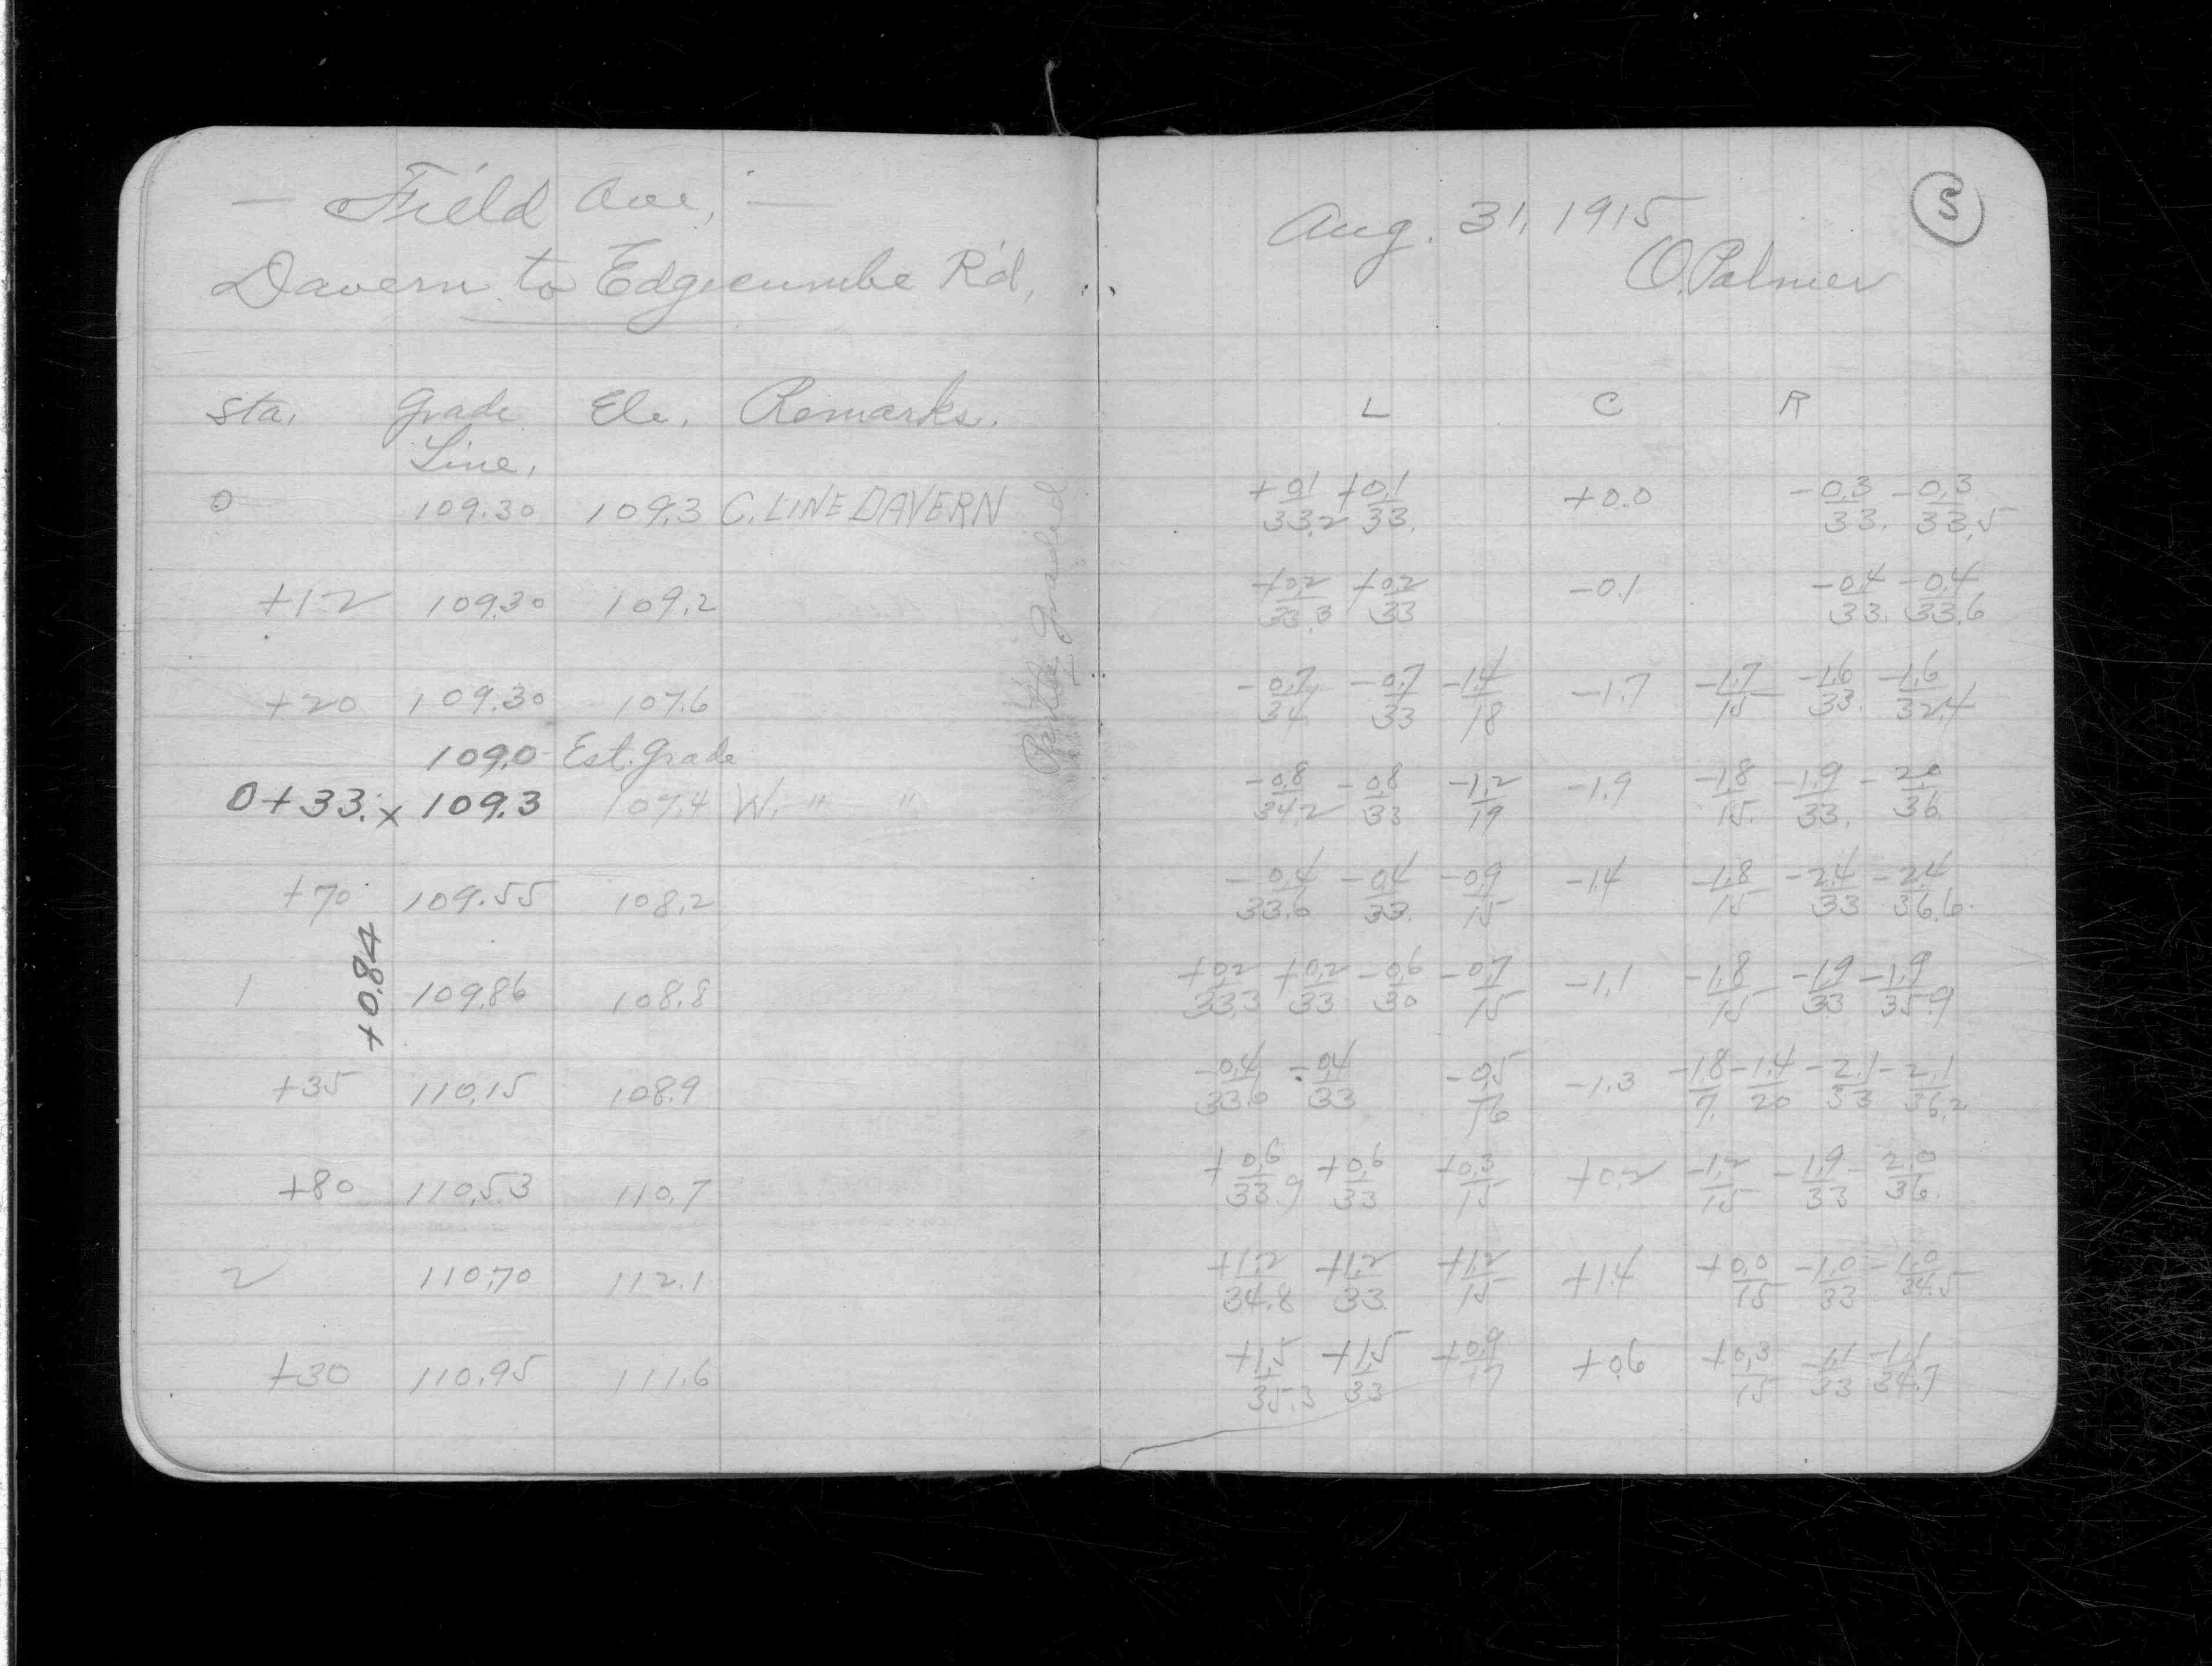 — Field Ave, —
Davern to Edgecumbe Rd,
Sta. Grade Line, Ele, Remarks.
0 109.30 109.3 C. LINE DAVERN
+12 109.30 109.2
+20 109.30 107.6
109.0 Est. Grade
0+33. x 109.3 107.4 W. " "
+70 109.55 108.2
+0.84
1 109.86 108.8
+35 110.15 108.9
+80 110.53 110.7
2 110.70 112.1
+30 110.95 111.6
graded
Aug. 31, 1915
O. Palmer
3
L C R
+0.1/33.2 +0.1/33. +0.0 -0.3/33. -0.3/33.5
+0.2/33.3 +0.2/33 -0.1 -0.4/33. -0.4/33.6
-0.7/34. -0.7/33 -1.4/18 -1.7 -1.7/15 -1.6/33. -1.6/32.4
-0.8/34.2 -0.8/33 -1.2/19 -1.9 -1.8/15. -1.9/33. -2.0/36.
-0.4/33.6 -0.4/33. -0.9/15 -1.4 -1.8/15 -2.4/33 -2.4/36.6
+0.2/33.3 +0.2/33 -0.6/30 -0.7/15 -1.1 -1.8/15 -1.9/33 -1.9/35.9
-0.4/33.6 -0.4/33 -0.5/16 -1.3 -1.8/7. -1.4/20 -2.1/33 -2.1/36.2
+0.6/33.9 +0.6/33 +0.3/15 +0.2 -1.2/15 -1.9/33 -2.0/36.
+1.2/34.8 +1.2/33. +1.2/15 +1.4 +0.0/15 -1.0/33 -1.0/34.5
+1.5/35.3 +1.5/33 +0.9/17 +0.6 +0.3/15 -1.1/33 -1.1/34.7